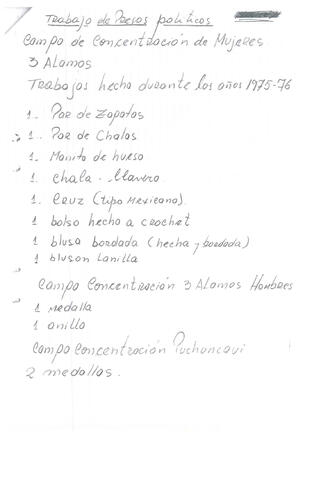 Trabajo de Presos politicos
Campo de Concentración de Mujeres
3 Alamos
Trabajos hecho durante los años 1975-76
1- Par de Zapatos
1- Par de Chalas
1- Manito de hueso
1 chala - llavero
1- Cruz (tipo Mexicano)
1 bolso hecho a crochet
1 blusa bordada (hecha y bordada)
1 bluson Lanilla
Campo Concentración 3 Alamos Hombres
1 medalla
1 anillo
Campo Concentración Puchuncavi
2 medallas.